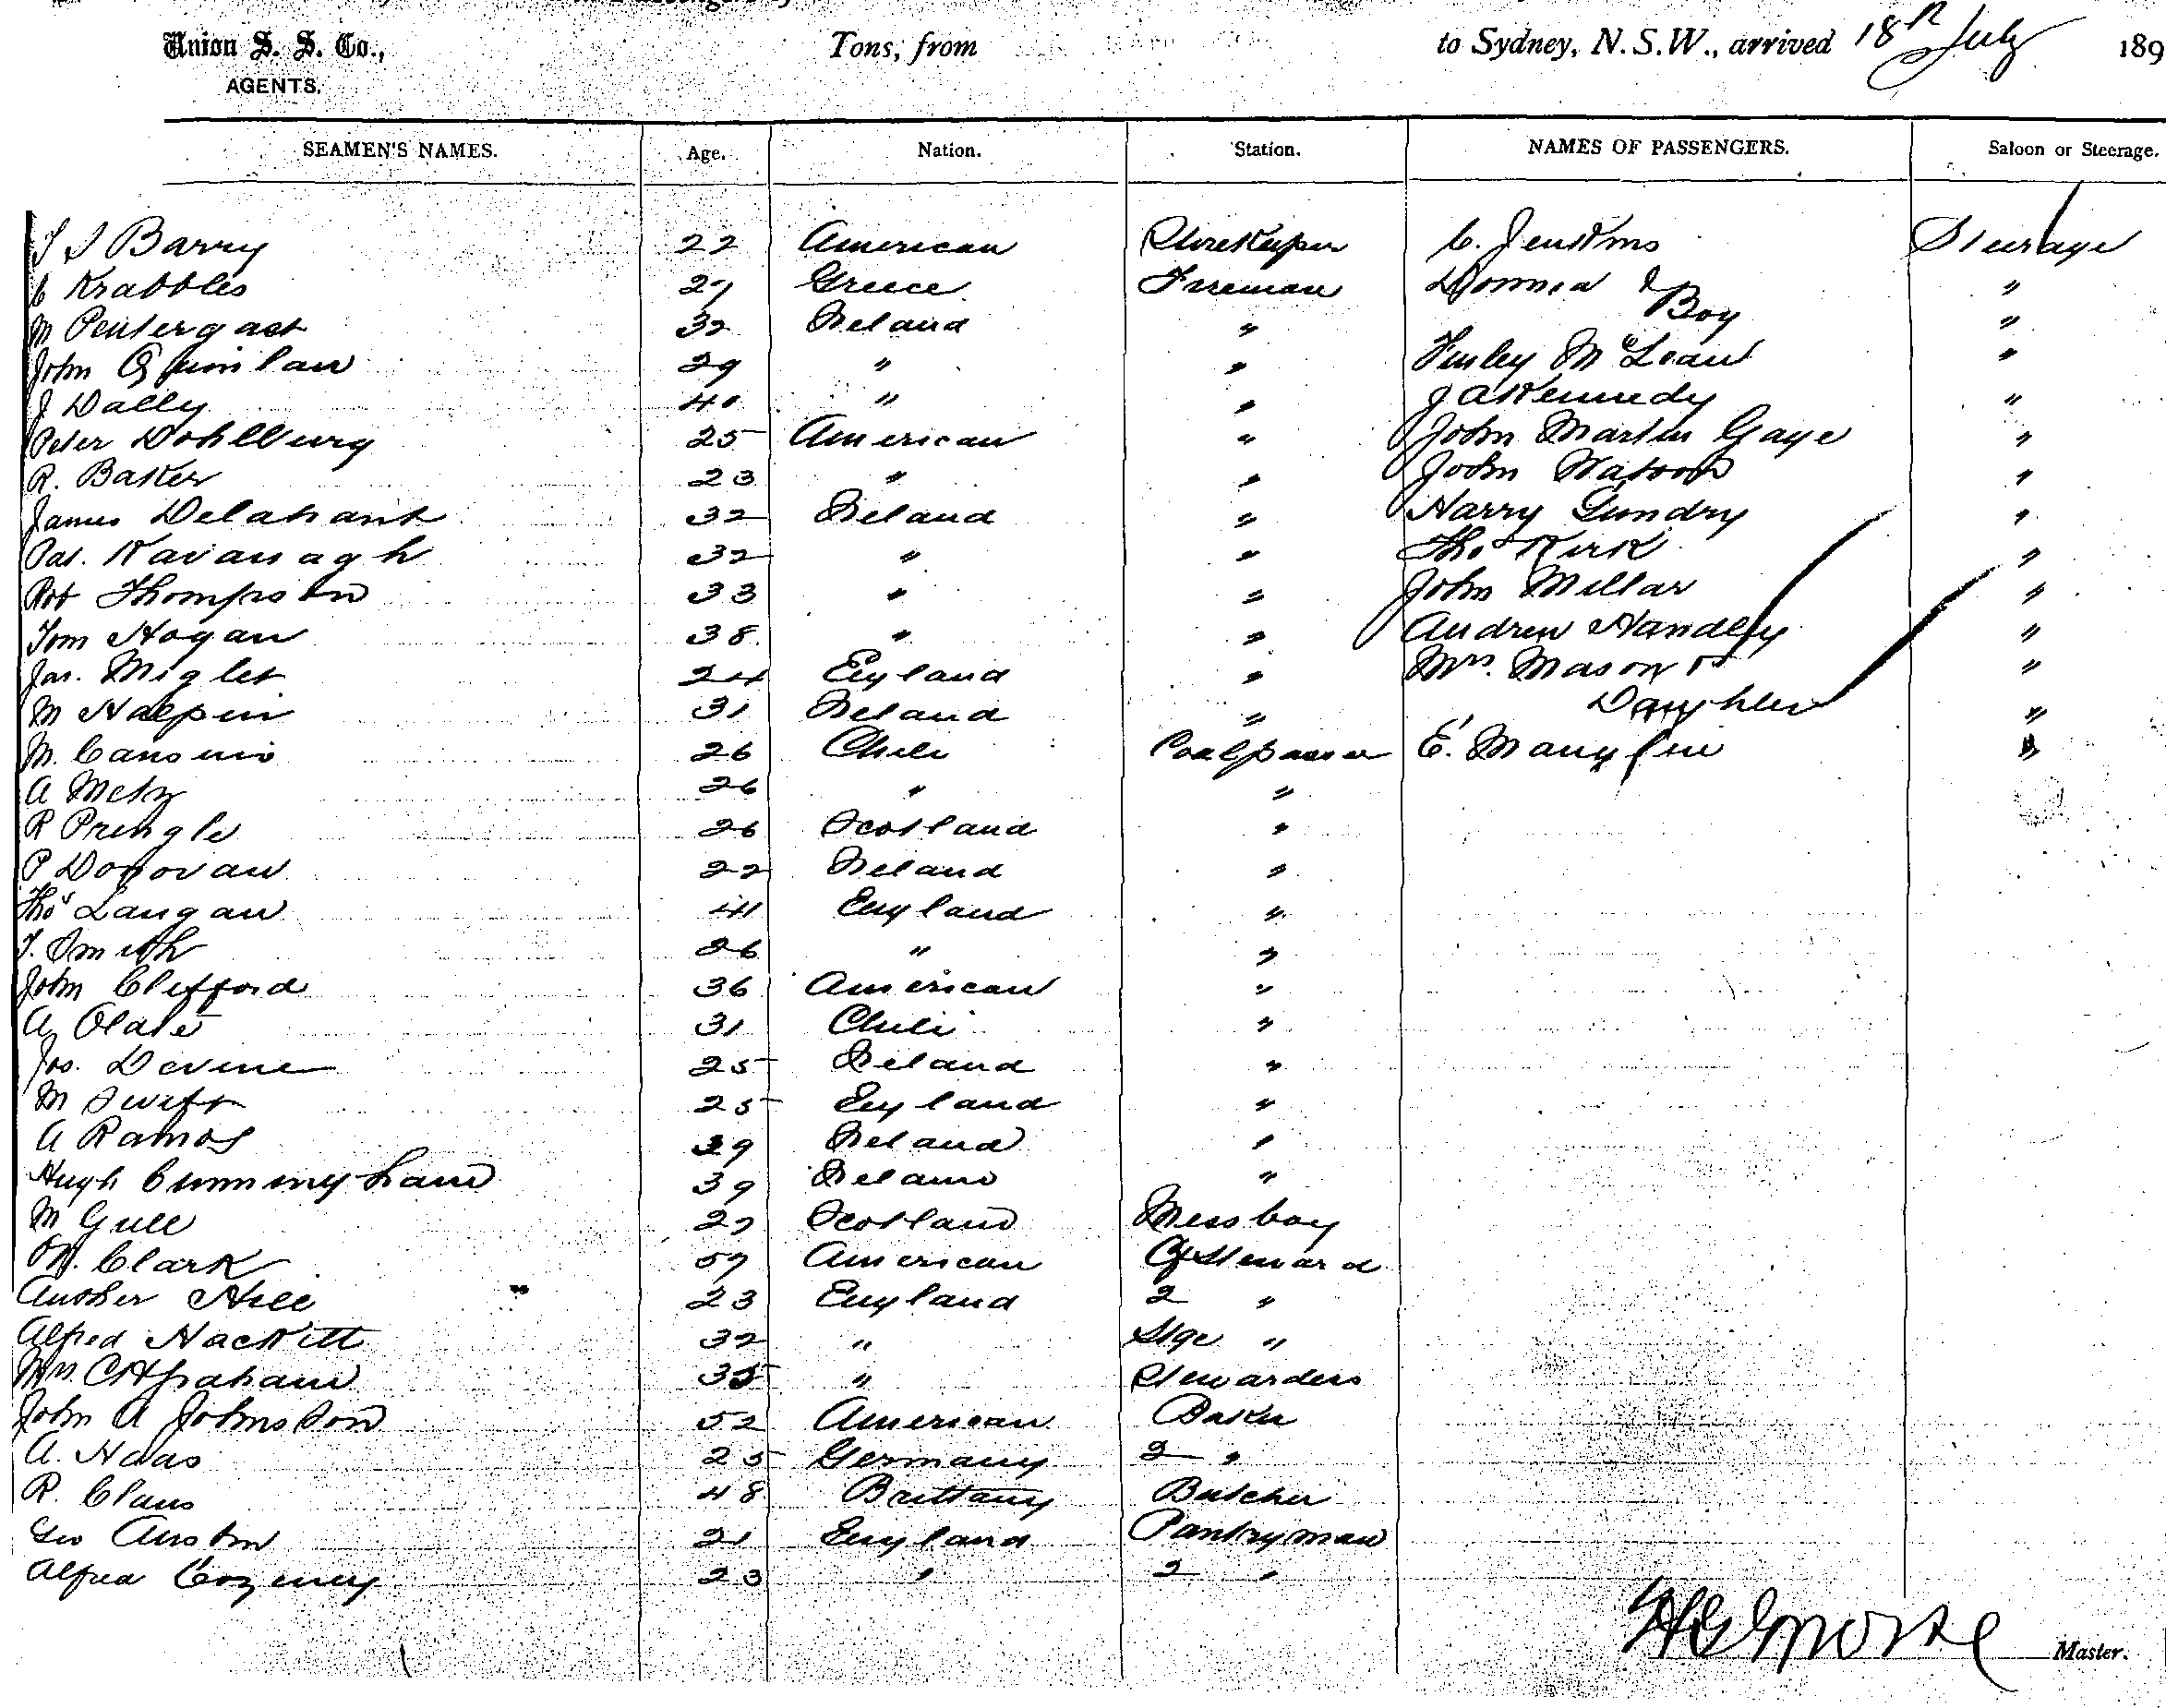 Union S. S. Co.,
AGENTS.
Tons, from
to Sydney, N.S.W., arrived 18th July 189
SEAMEN'S NAMES. Age. Nation. Station. NAMES OF PASSENGERS. Saloon or Steerage.
Barry 22 American Storekeeper C. Jenkins Steerage
C Krabbles 27 Greece Fireman &
M Pentergast 32 Ireland " Boy "
John Quinlan 29 " " Finley McLean "
J Dally 40 " " J A Kennedy "
Peter Dohlburg 25 American " John Martin Gaye "
R. Baker 23 " " John Watson "
James Delahant 32 Ireland " Harry Gundry "
Pat. Kavanagh 32 " " Thos Kirk "
Rob Thompson 33 " " John Millar "
Tom Hogan 38 " " Andrew Handley "
Jas. Miglet 24 England " Mrs. Mason & "
M Halpin 31 Ireland " Daughter "
M. 26 Chili Coalpasser E. "
A Metz 26 " "
R Pringle 26 Scotland "
P Donovan 22 Ireland "
Thos Langan 41 England "
T. Smith 26 " "
John Clifford 36 American "
A Olate 31 Chili "
Jos. Devine 25 Ireland "
M Swift 25 England "
A Ramos 39 Ireland "
Hugh Cunningham 39 Ireland "
M Gill 27 Scotland Messboy
W. Clark 57 American Steward
Hill 23 England 2 "
Alfred Hackitt 32 " Stge "
Mrs. Graham 35 " Stewardess
John A Johnston 52 American Baker
A. Haas 25 Germany 2 "
R. Claus 48 Brittany Butcher
Geo Austin 21 England Pantryman
Alfred Cozency 23 " 2 "
Morse Master.